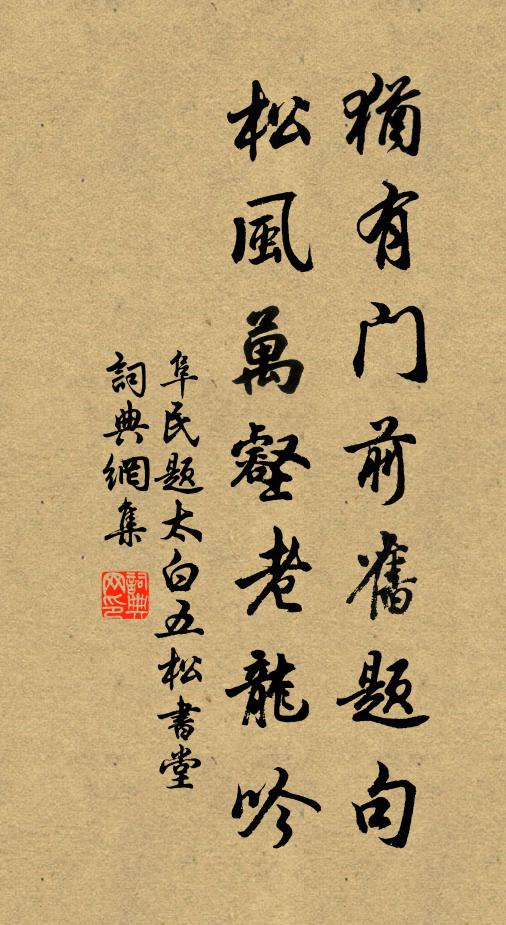 猶有門前舊題句
松風萬壑老龍吟
阜民題太白五松書堂
詞典網集
詞典网印